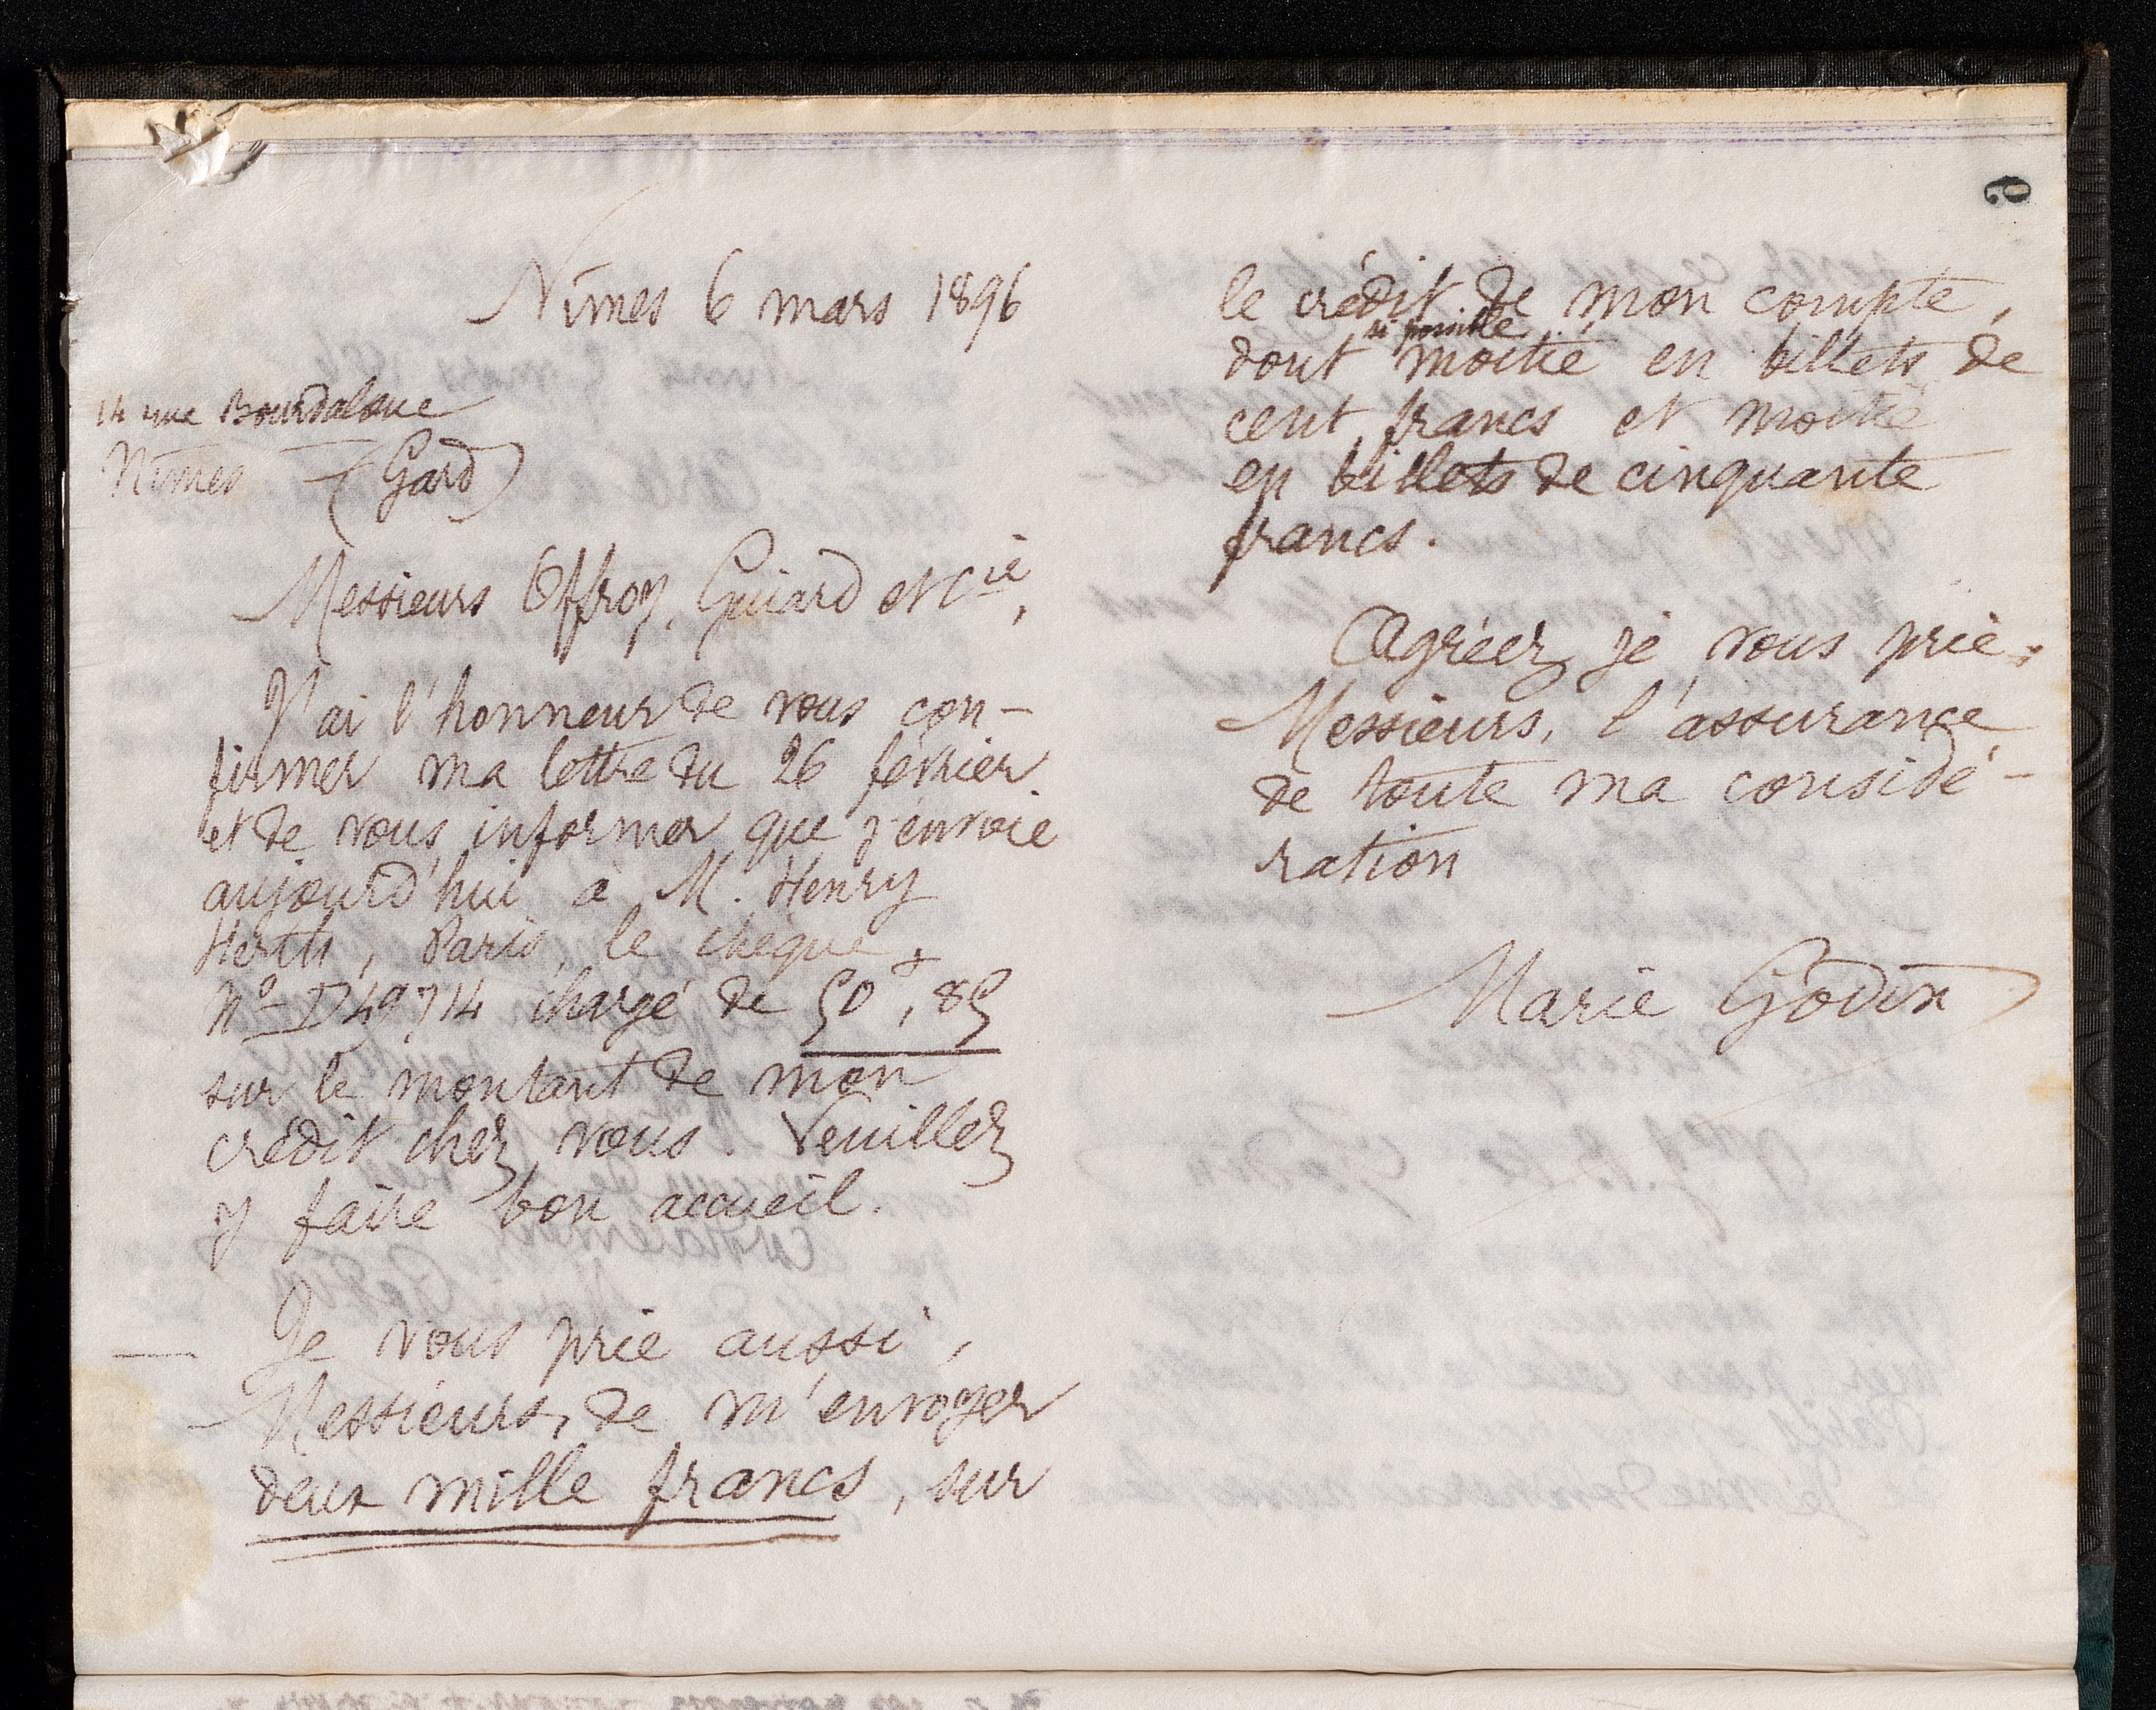 6
Nîmes 6 mars 1896
14 rue Bourdaloue
Nîmes (Gard)
Messieurs Offroy, Guiard et Cie,
J'ai l'honneur de vous con-
firmer ma lettre du 26 février
et de vous informer que j'envoie
aujourd'hui à M. Henry
Herth, Paris, le chèque
No D49714 chargé de 50f,85
sur le montant de mon
crédit chez vous. Veuillez
y faire bon accueil.
Je vous prie aussi,
Messieurs, de m'envoyer
deux mille francs, sur
le crédit de mon compte,
si possible
dont moitié en billets de
cent francs et moitié
en billets de cinquante
francs.
Agréez je vous prie,
Messieurs, l'assurance
de toute ma considé-
ration
Marie Godin